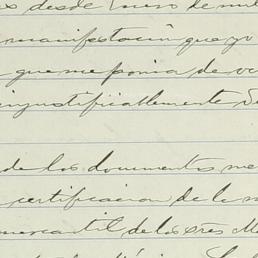 desde Enero de mil
manifestación que yo
que me ponia de
injustificablemente
de los documentos
certificacion de la
mercantil de los tres